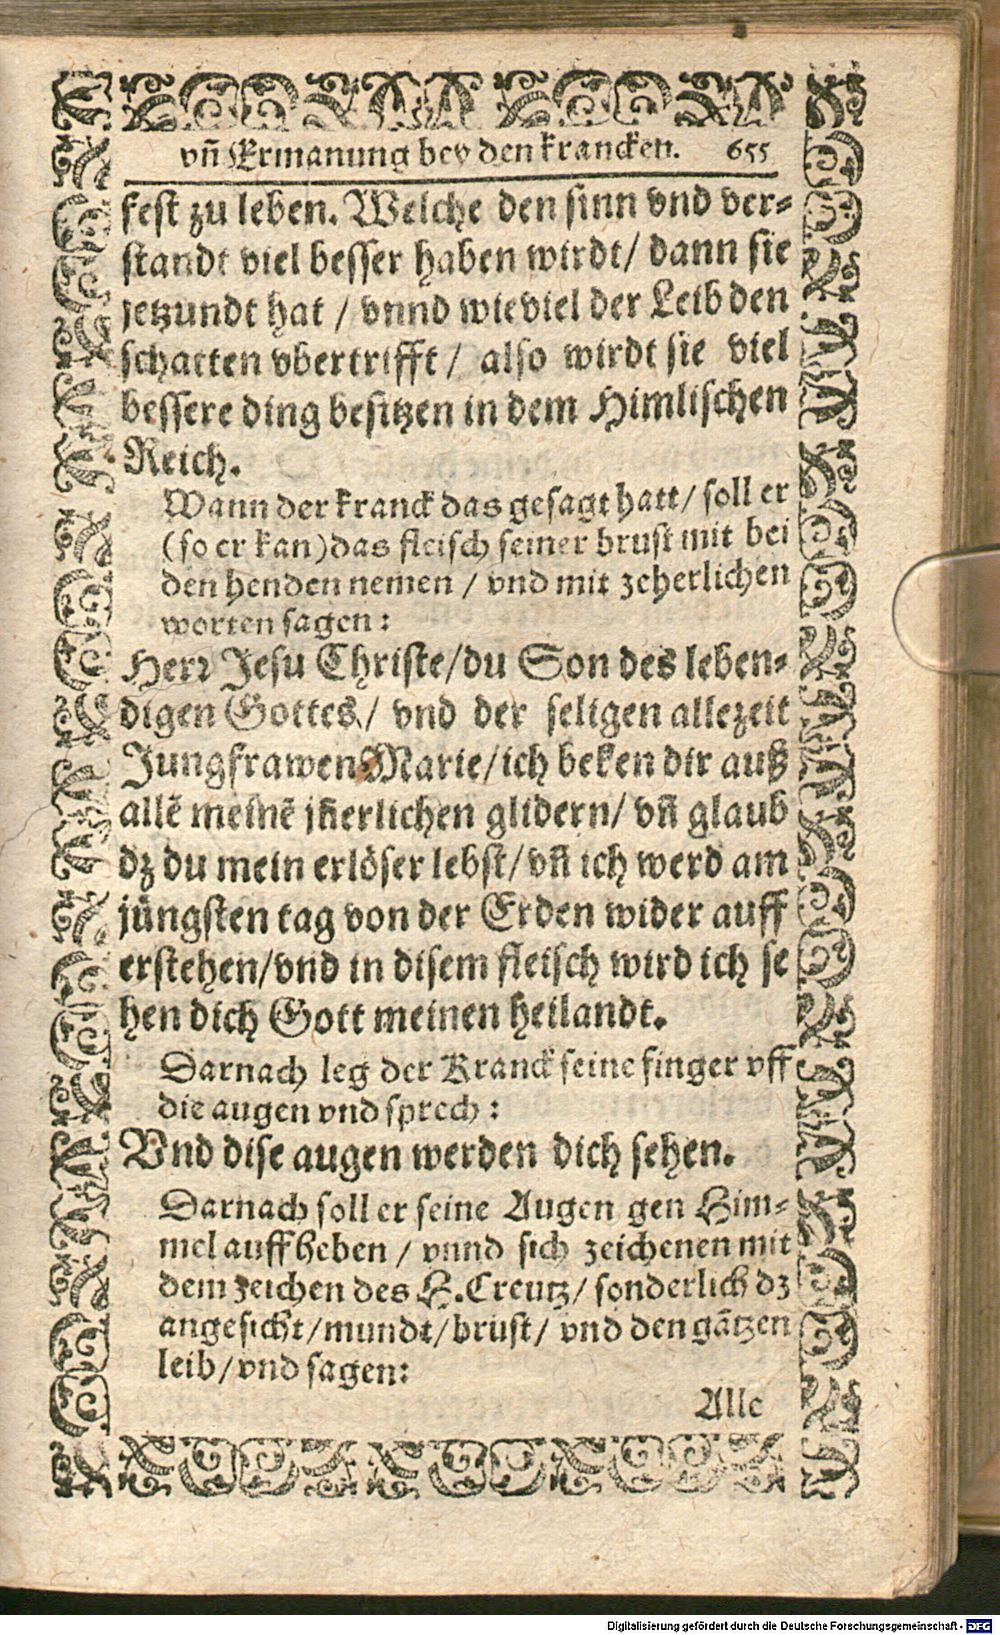 vñ Ermanung bey den krancken. 655
fest zu leben. Welche den sinn vnd ver-
standt viel besser haben wirdt/ dann sie
jetzundt hat / vnnd wieviel der Leib den
schatten vbertrifft / also wirdt sie viel
bessere ding besitzen in dem Himlischen
Reich.
Wann der kranck das gesagt hatt/ soll er
(so er kan) das fleisch seiner brust mit bei
den henden nemen / vnd mit zeherlichen
worten sagen:
Herr Jesu Christe/du Son des leben-
digen Gottes / vnd der seligen allezeit
Jungfrawen Marie/ich beken dir auß
allē meinē jñerlichen glidern/ vñ glaub
dz du mein erlöser lebst/vñ ich werd am
jüngsten tag von der Erden wider auff
erstehen/vnd in disem fleisch wird ich se
hen dich Gott meinen heilandt.
Darnach leg der Kranck seine finger vff
die augen vnd sprech:
Vnd dise augen werden dich sehen.
Darnach soll er seine Augen gen Him-
mel auffheben / vnnd sich zeichenen mit
dem zeichen des H. Creutz/ sonderlich dz
angesicht/mundt/brust/ vnd den gātzen
leib/vnd sagen:
Alle
Digitalisierung gefördert durch die Deutsche Forschungsgemeinschaft - DFG